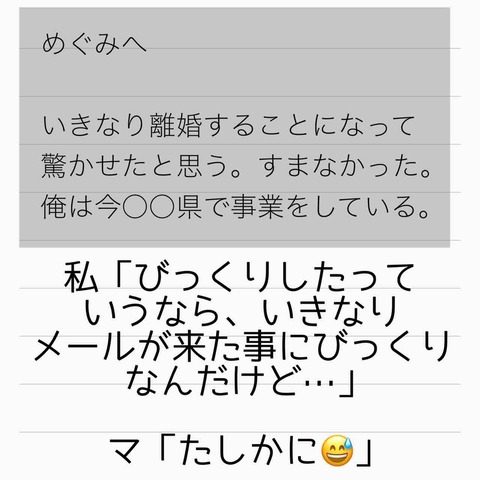 めぐみへ
いきなり離婚することになって
驚かせたと思う。すまなかった。
俺は今〇〇県で事業をしている。
私「びっくりしたって
いうなら、いきなり
メールが来た事にびっくり
なんだけど…」
マ「たしかに😅」